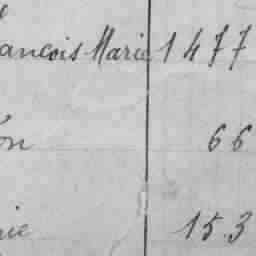 ancois Marie 1477
on 66
rie 153